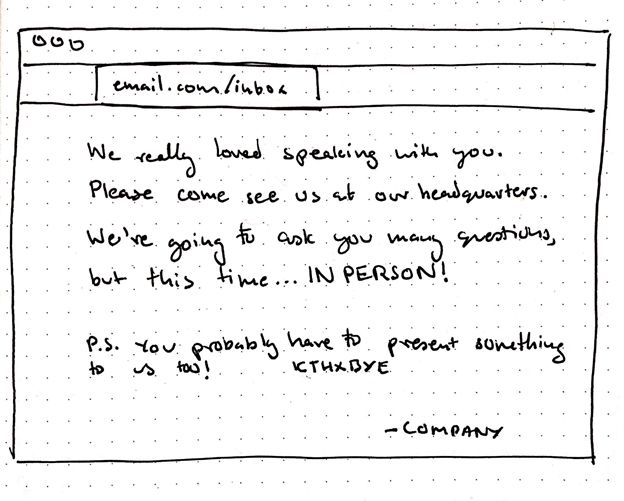 email.com/inbox
We really loved speaking with you.
Please come see us at our headquarters.
We're going to ask you many questions,
but this time... IN PERSON!
P.S. You probably have to present something
to us too! KTHXBYE
-COMPANY